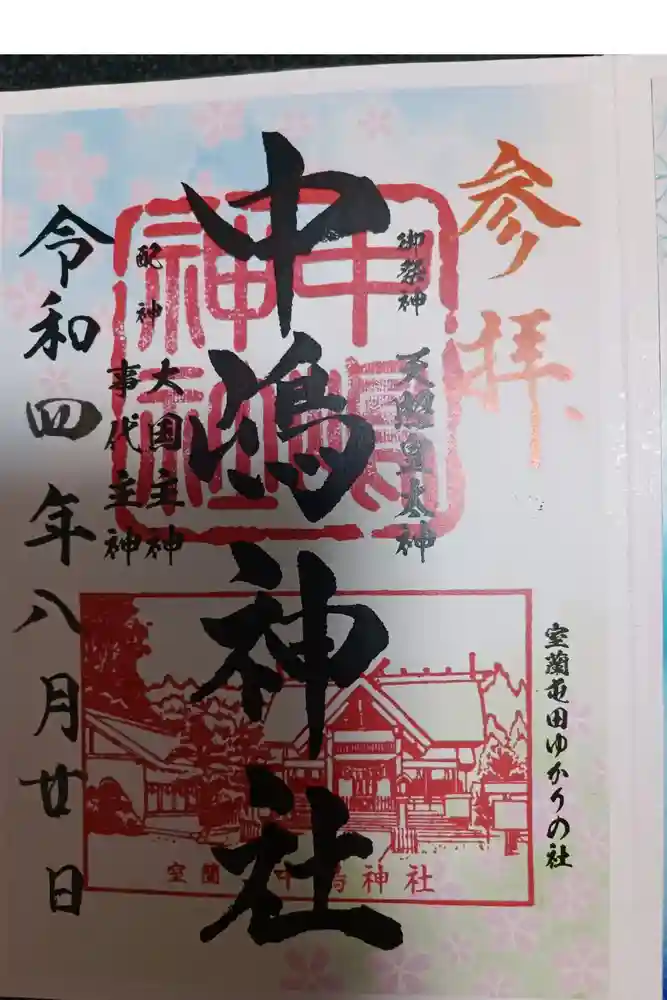 参拝
室蘭屯田ゆかりの社
御祭神 天照皇太神
中嶋神社
中嶋神社
配神 大国主神
事代主神
令和四年八月廿日
室蘭 中嶋神社